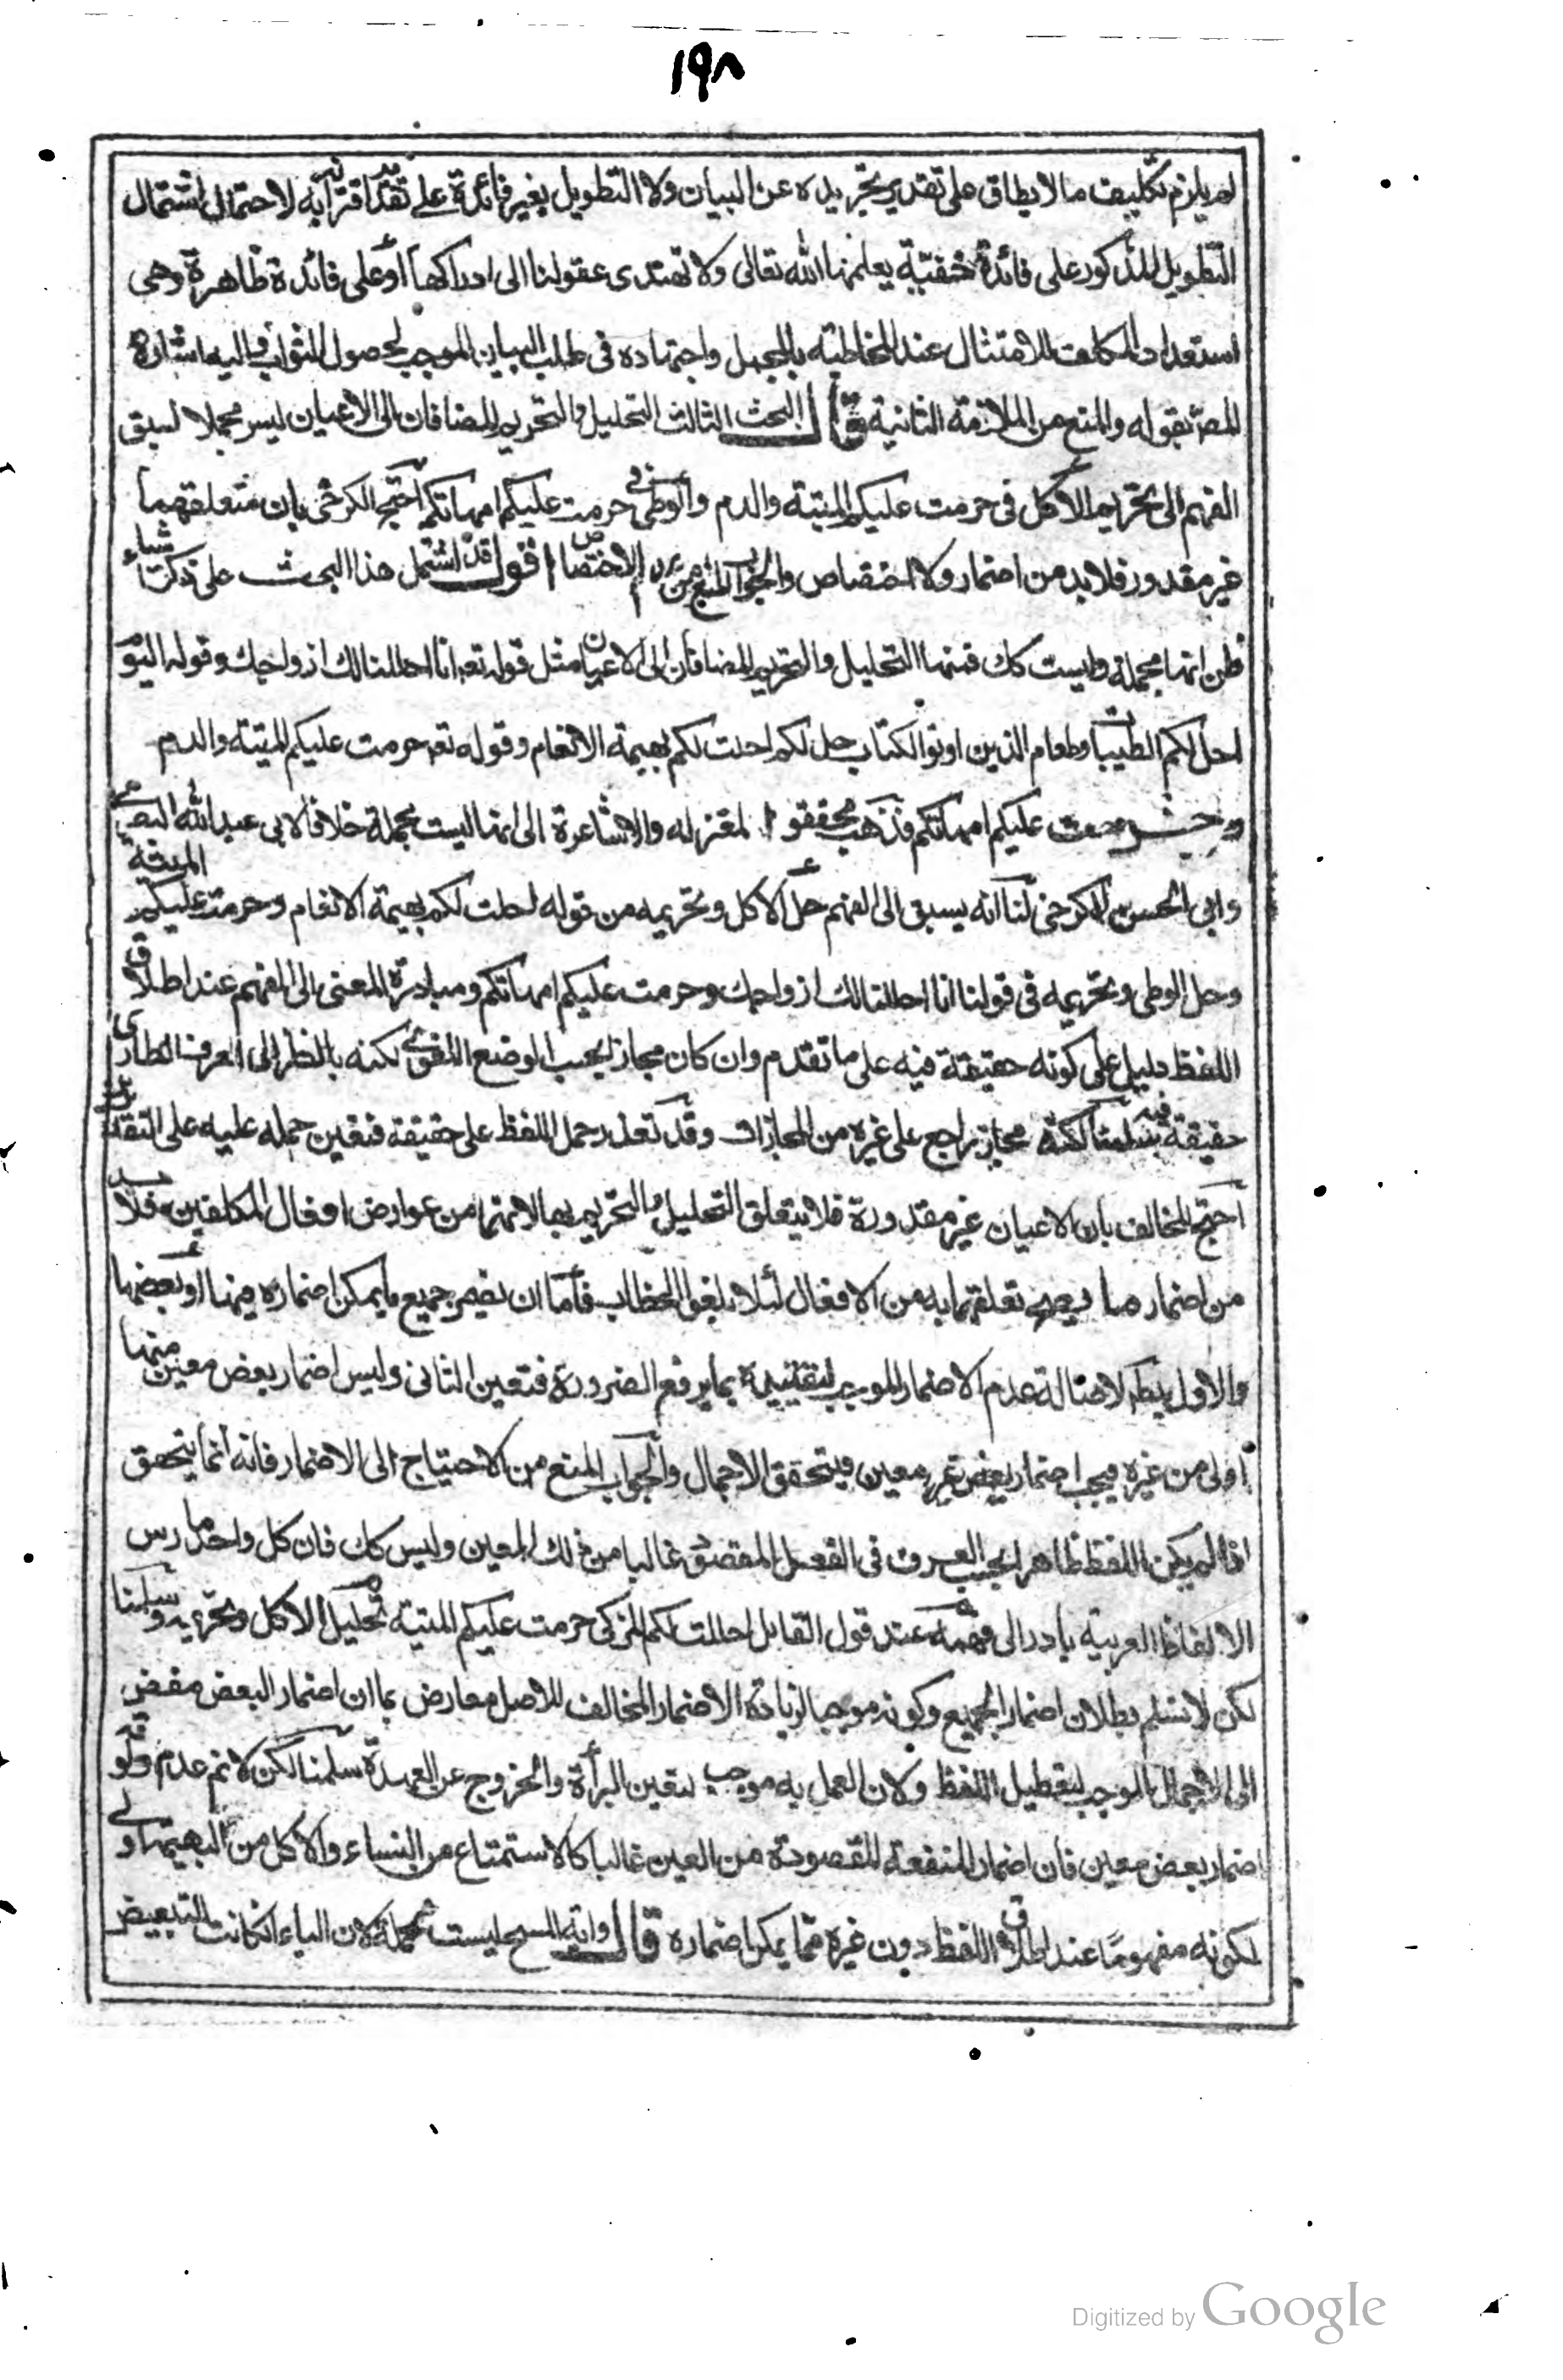 ١٩٨
لم يلزم تكليف ما لا يطاق على تقدير تجريده عن البيان ولا التطويل بغير فائدة على تقدير اقترانه لاحتمال اشتمال
التطويل المذكور على فائدة خفية يعلمها الله تعالى ولا تهتدى عقولنا الى ادراكها او على فائدة ظاهرة وهى
استعداد المكلف للامتثال عند المخاطبة بالمجمل واجتهاده فى طلب البيان الموجب لحصول الثواب واليه اشارة
المص بقوله والمنع من الملازمة الثانية قال البحث الثالث التحليل والتحريم المضافان الى الاعيان ليس مجملا لسبق
الفهم الى تحريم الاكل فى حرمت عليكم الميتة والدم والوطى فى حرمت عليكم امهاتكم احتج الكرخى بان متعلقهما
غير مقدور فلا بد من اضمار ولا اختصاص والجواب المنع من عدم الاختصاص اقول قد اشتمل هذا البحث على ذكر اشياء
ظن انها مجملة وليست كك فمنها التحليل والتحريم المضافان الى الاعيان مثل قوله تعه انا احللنا لك ازواجك وقوله اليوم
احل لكم الطيبات وطعام الذين اوتوا الكتاب حل لكم احلت لكم بهيمة الانعام وقوله تعه حرمت عليكم الميتة والدم
حرمت عليكم امهاتكم فذهب محققوا المعتزله والاشاعرة الى انها ليست مجملة خلافا لابى عبد الله البصرى
وابى الحسن الكرخى لنا انه يسبق الى الفهم حل الاكل وتحريمه من قوله احلت لكم بهيمة الانعام وحرمت عليكم الميتة
وحل الوطى وتحريمه فى قولنا انا احللنا لك ازواجك وحرمت عليكم امهاتكم ومبادرة المعنى الى الفهم عند اطلاق
اللفظ دليل على كونه حقيقة فيه على ما تقدم وان كان مجازا بحسب الوضع اللغوى لكنه بالنظر الى العرف الطارى
حقيقة فيه سلمنا لكنه مجاز راجح على غيره من المجازات وقد تعذر حمل اللفظ على حقيقة فتعين حمله عليه على التقديرين
احتج المخالف بان الاعيان غير مقدورة فلا يتعلق التحليل والتحريم بها لانهما من عوارض افعال المكلفين فلا بد
من اضمار ما يصح تعلقهما به من الافعال لئلا يلغوا الخطاب فاما ان يضمر جميع ما يمكن اضماره فيها او بعضها
والاول بط لاصالة عدم الاضمار الموجب لتقييده بما يرفع الضرورة فتعين الثانى وليس اضمار بعض معين منها
اولى من غيره فيجب اضمار بعض غير معين فيتحقق الاجمال والجواب المنع من الاحتياج الى الاضمار فانه انما يتحقق
اذا لم يكن اللفظ ظاهرا بحسب العرف فى الفعل المقصود غالبا من ذلك المعين وليس كك فان كل واحد مارس
الالفاظ العربية بادر الى فهمه عند قول القايل احللت لكم المذكى حرمت عليكم الميتة تحليل الاكل وتحريمه سلمنا
لكن لا نسلم بطلان اضمار الجميع وكونه موجبا لزيادة الاضمار المخالف للاصل معارض بما ان اضمار البعض مفض
الى الاجمال الموجب لتعطيل اللفظ ولان العمل به موجب لتعين البرأة والخروج عن العهدة سلمنا لكن لا نم عدم اولوية
اضمار بعض معين فان اضمار المنفعة المقصودة من العين غالبا كالاستمتاع من النساء والاكل من البهيمة اولى
لكونه مفهوما عند اطلاق اللفظ دون غيره مما يمكن اضماره قال واية المسح ليست مجملة لان الباء ان كانت للتبعيض
Digitized by Google